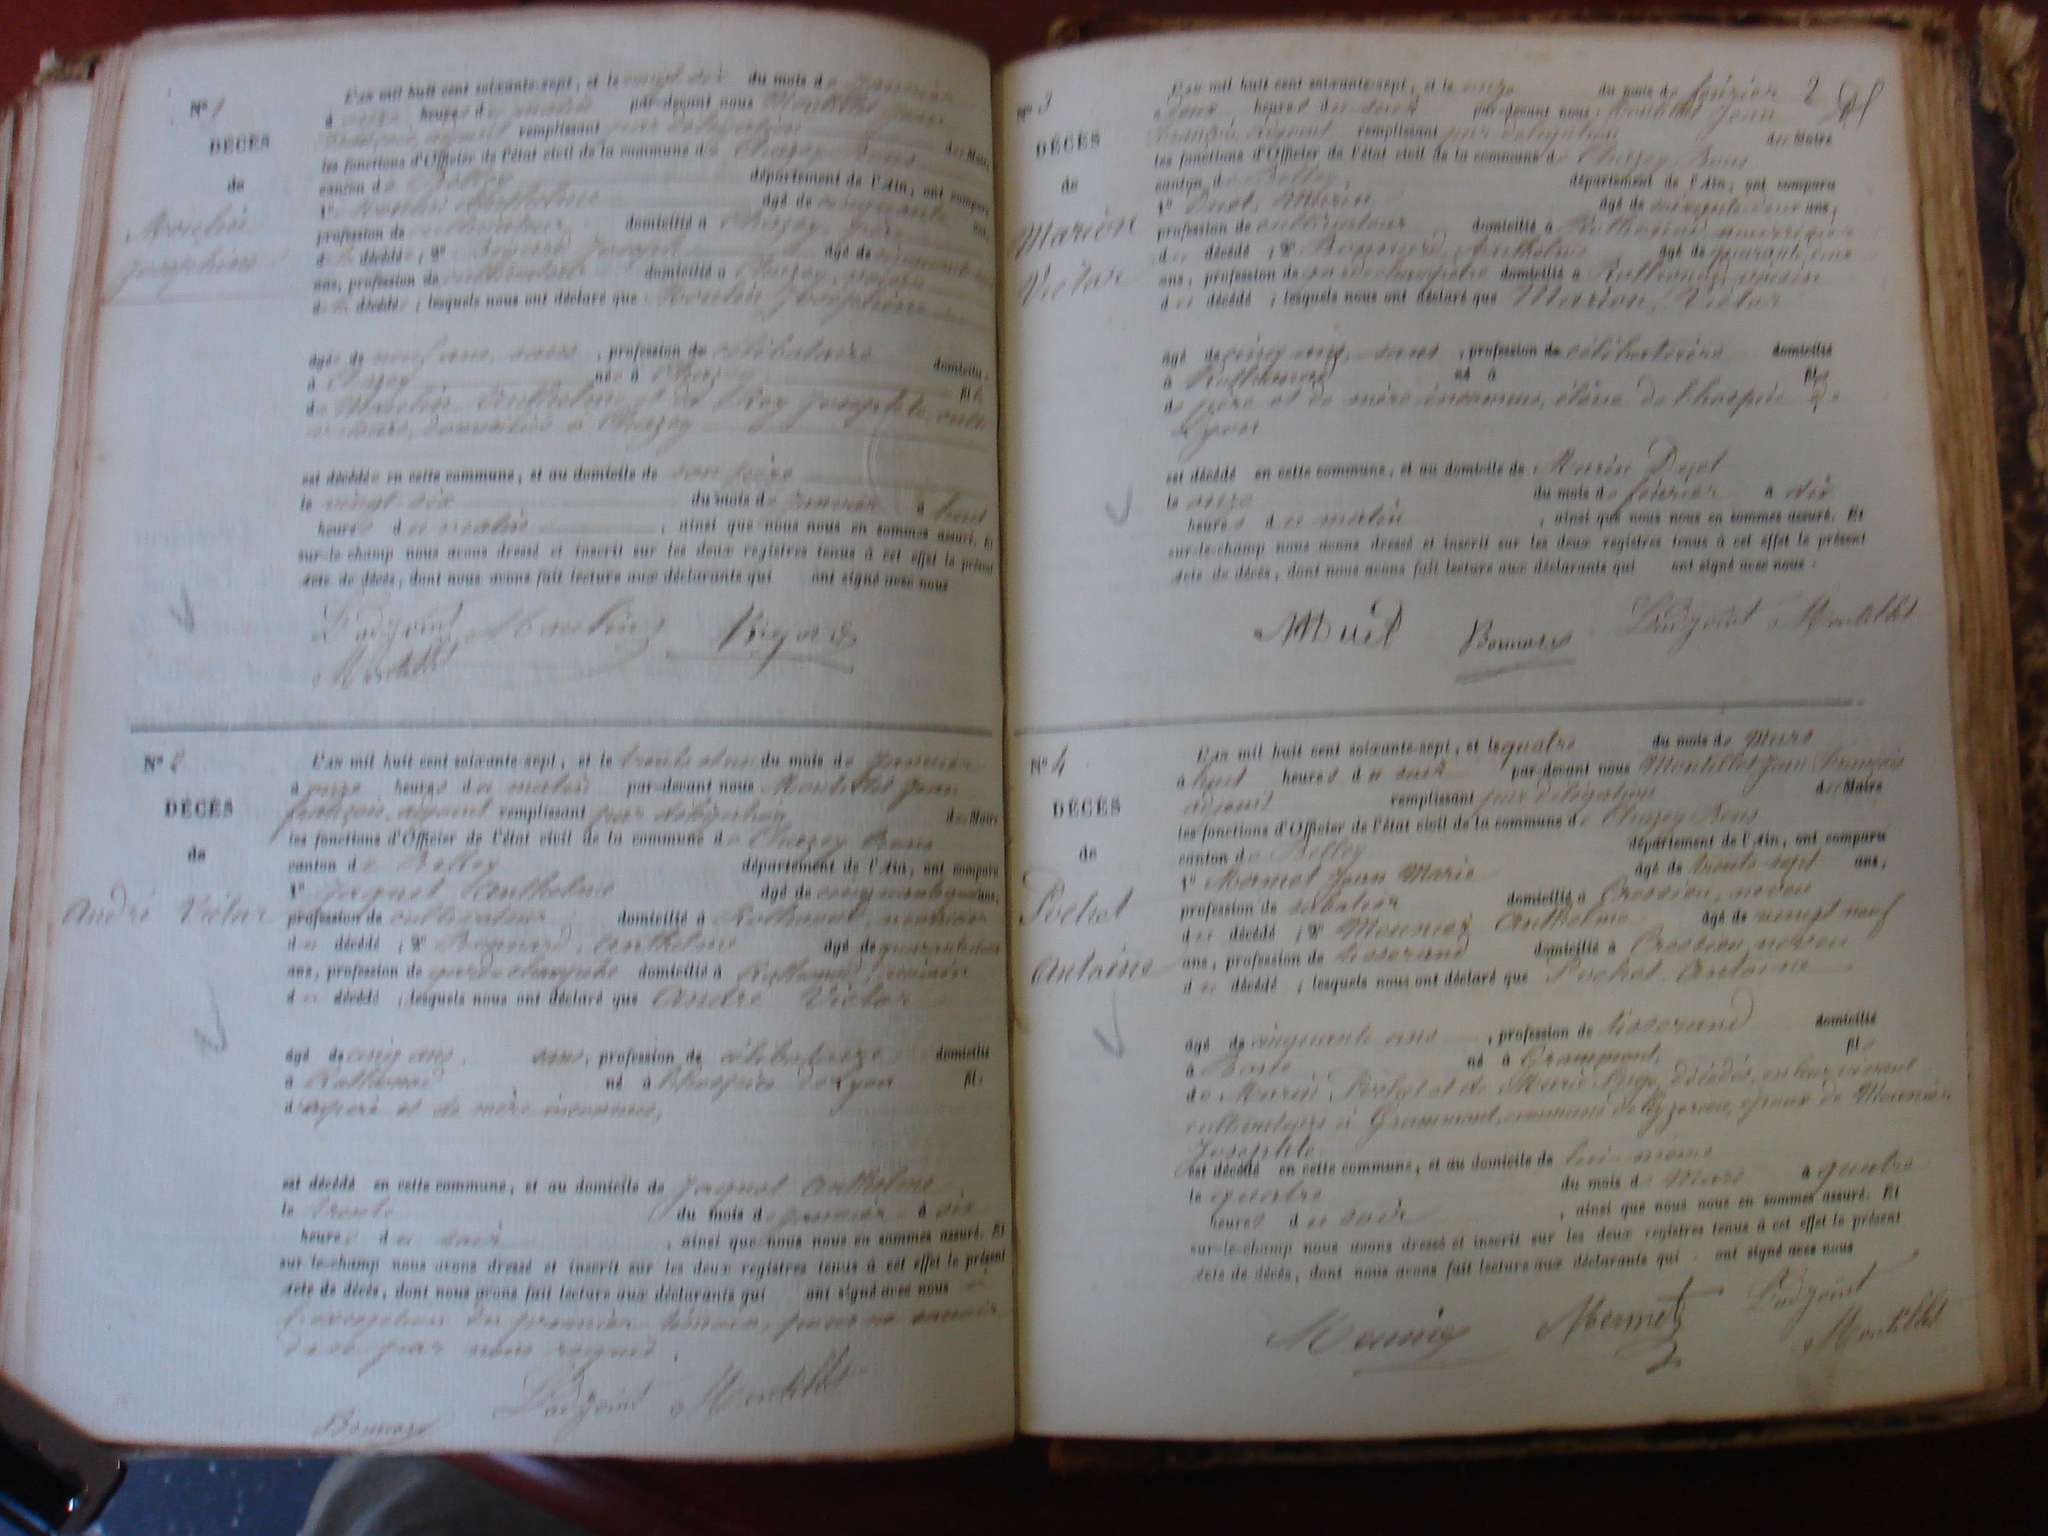 N° 1
DÉCÈS
de
Moulin
Josephine
L'AN mil huit cent soixante-sept, et le vingt six du mois de janvier
à onze heures du matin par-devant nous Montillet Jean
François, adjoint remplissant par délégation du Maire
les fonctions d'Officier de l'état civil de la commune de Chazey Bons
canton de Belley département de l'Ain, ont comparu
1° Moulin Anthelme âgé de cinquante ans,
profession de cultivateur domicilié à Chazey, père
de la décédée ; 2° Joseph âgé de cinquante
ans, profession de cultivateur domicilié à Chazey, voisin
de la décédée ; lesquels nous ont déclaré que Moulin Josephine
âgée de neuf ans, sans , profession de célibataire domiciliée
à Chazey née à Chazey fille
de Moulin Anthelme et de Josephte, culti
vateurs, domiciliés à Chazey
est décédée en cette commune, et au domicile de son père
le vingt six du mois de janvier à huit
heures du matin , ainsi que nous nous en sommes assuré. Et
sur-le-champ nous avons dressé et inscrit sur les deux registres tenus à cet effet le présent
acte de décès, dont nous avons fait lecture aux déclarants qui ont signé avec nous
L'adjoint Moulin
Montillet
N° 2
DÉCÈS
de
André Victor
L'AN mil huit cent soixante-sept, et le trente et un du mois de janvier
à onze heures du matin par-devant nous Montillet Jean
François, adjoint remplissant par délégation du Maire
les fonctions d'Officier de l'état civil de la commune de Chazey Bons
canton de Belley département de l'Ain, ont comparu
1° Jaquet Anthelme âgé de cinquante ans,
profession de cultivateur domicilié à Rothonod, nourricier
du décédé ; 2° Bonnard, Anthelme âgé de quarante un
ans, profession de garde champêtre domicilié à Rothonod, voisin
du décédé ; lesquels nous ont déclaré que André Victor
âgé de cinq ans, sans, profession de célibataire domicilié
à Rothonod né à l'hospice de Lyon fils
de père et de mère inconnus,
est décédé en cette commune, et au domicile de Jaquet Anthelme
le trente du mois de janvier à six
heures du soir , ainsi que nous nous en sommes assuré. Et
sur-le-champ nous avons dressé et inscrit sur les deux registres tenus à cet effet le présent
acte de décès, dont nous avons fait lecture aux déclarants qui ont signé avec nous à
l'exception du premier témoin, pour ne savoir
de ce par nous requis.
L'adjoint Montillet
Bonnard
2
N° 3
DÉCÈS
de
Marion
Victor
L'AN mil huit cent soixante-sept, et le onze du mois de février
à deux heures du soir par-devant nous Montillet Jean
François, adjoint remplissant par délégation du Maire
les fonctions d'Officier de l'état civil de la commune de Chazey Bons
canton de Belley, département de l'Ain, ont comparu
1° Marin âgé de ans,
profession de cultivateur domicilié à Rothonod, nourricier
du décédé ; 2° Bonnard, Anthelme âgé de quarante une
ans, profession de garde champêtre domicilié à Rothonod, voisin
du décédé ; lesquels nous ont déclaré que Marion, Victor
âgé de cinq ans, sans , profession de célibataire domicilié
à Rothonod né à fils
de père et de mère inconnus, élève de l'hospice de
Lyon
est décédé en cette commune, et au domicile de Marin
le onze du mois de février à dix
heures du matin , ainsi que nous nous en sommes assuré. Et
sur-le-champ nous avons dressé et inscrit sur les deux registres tenus à cet effet le présent
acte de décès, dont nous avons fait lecture aux déclarants qui ont signé avec nous.
Bonnard L'adjoint Montillet
N° 4
DÉCÈS
de
Pochat
Antoine
L'AN mil huit cent soixante-sept, et le quatre du mois de Mars
à huit heures du soir par-devant nous Montillet Jean François
adjoint remplissant par délégation du Maire
les fonctions d'Officier de l'état civil de la commune de Chazey Bons
canton de Belley département de l'Ain, ont comparu
1° Mermet Jean Marie âgé de trente sept ans,
profession de sabotier domicilié à Cressieu, neveu
du décédé ; 2° Meunier Anthelme âgé de vingt neuf
ans, profession de tisserand domicilié à Cressieu, neveu
du décédé ; lesquels nous ont déclaré que Pochat Antoine
âgé de cinquante ans , profession de tisserand domicilié
à né à Grammont, fils
de Marin Pochat et de Marie décédés, en leur vivant
cultivateurs à Grammont, commune de Ceyzerieu, époux de Meunier
Josephte
est décédé en cette commune, et au domicile de lui-même
le quatre du mois de Mars à quatre
heures du soir , ainsi que nous nous en sommes assuré. Et
sur-le-champ nous avons dressé et inscrit sur les deux registres tenus à cet effet le présent
acte de décès, dont nous avons fait lecture aux déclarants qui ont signé avec nous
Meunier Mermet L'adjoint
Montillet